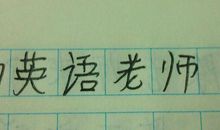 英语老师